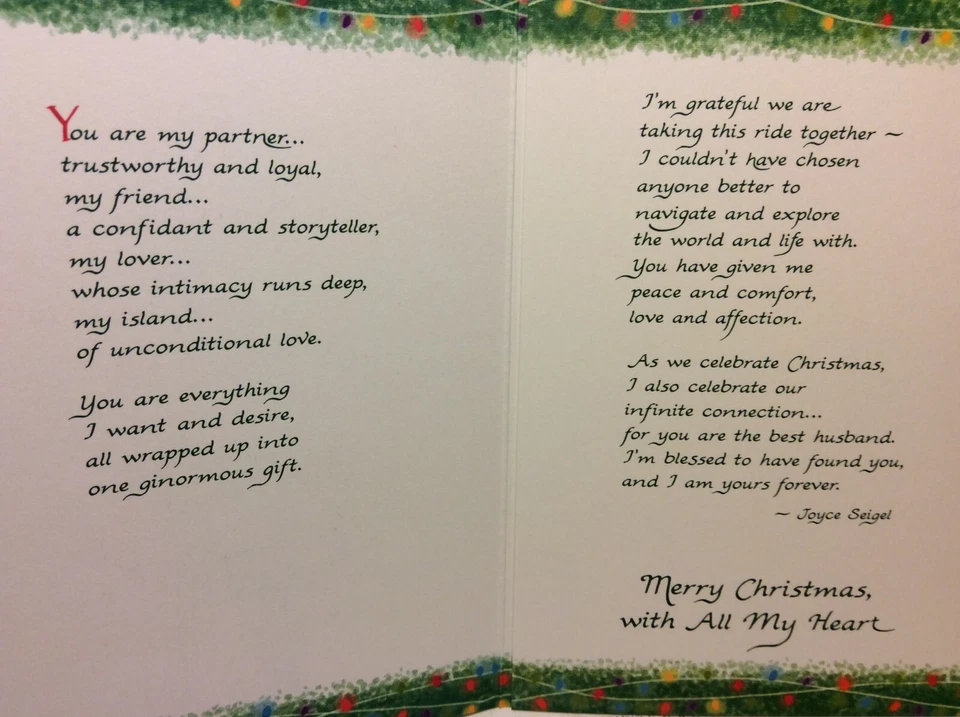 You are my partner...
trustworthy and loyal,
my friend...
a confidant and storyteller,
my lover...
whose intimacy runs deep,
my island...
of unconditional love.
You are everything
I want and desire,
all wrapped up into
one ginormous gift.
I'm grateful we are
taking this ride together ~
I couldn't have chosen
anyone better to
navigate and explore
the world and life with.
You have given me
peace and comfort,
love and affection.
As we celebrate Christmas,
I also celebrate our
infinite connection...
for you are the best husband.
I'm blessed to have found you,
and I am yours forever.
~ Joyce Seigel
Merry Christmas,
with All My Heart